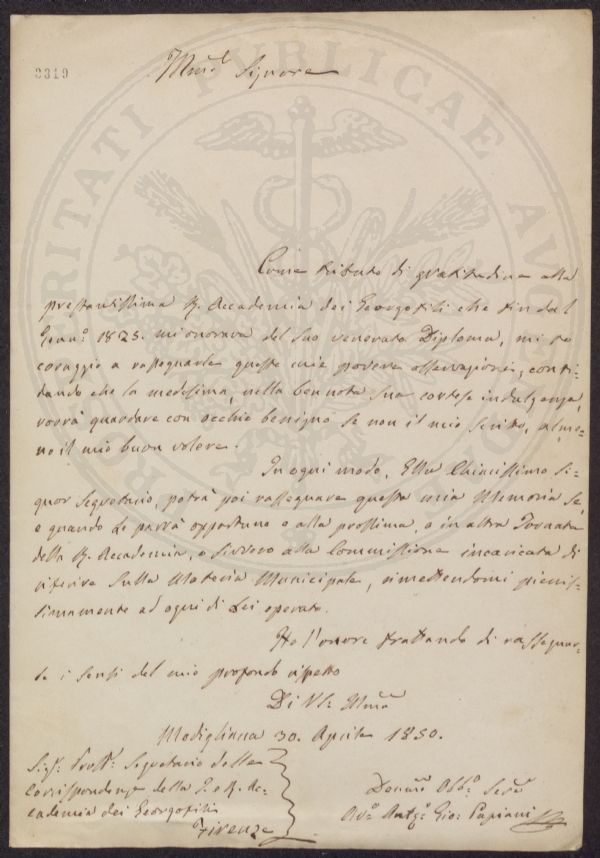 2319
Illmo Signore
Come tributo di gratitudine alla
prestantissima R. Accademia dei Georgofili che fin dal
Genn.o 1825. mi onorava del suo venerato Diploma, mi fo
coraggio a rassegnarle queste mie povere osservazioni, confi-
dando che la medesima, nella ben nota sua cortese indulgenza,
vorrà guardare con occhio benigno se non il mio scritto, alme-
no il mio buon volere.
In ogni modo, Ella Chiarissimo Si-
gnor Segretario, potrà poi rassegnare questa mia Memoria se,
e quando Le parrà opportuno o alla prossima, o in altra Tornata
della R. Accademia, o sivvero alla Commissione incaricata di
riferire sulla Materia Municipale, rimettendomi pienis-
simamente ad ogni di Lei operato.
Ho l'onore frattanto di rassegnar-
le i sensi del mio profondo rispetto
Di VS. Illma
Modigliana 30. Aprile 1850.
Sig.r Proff.r Segretario delle
Corrispondenze della I. e R. Ac-
cademia dei Georgofili
Firenze
Devmo Obb.o Serv.
Av.o Gio. Papiani
PROSPERITATI PVBLICAE AVGENDAE